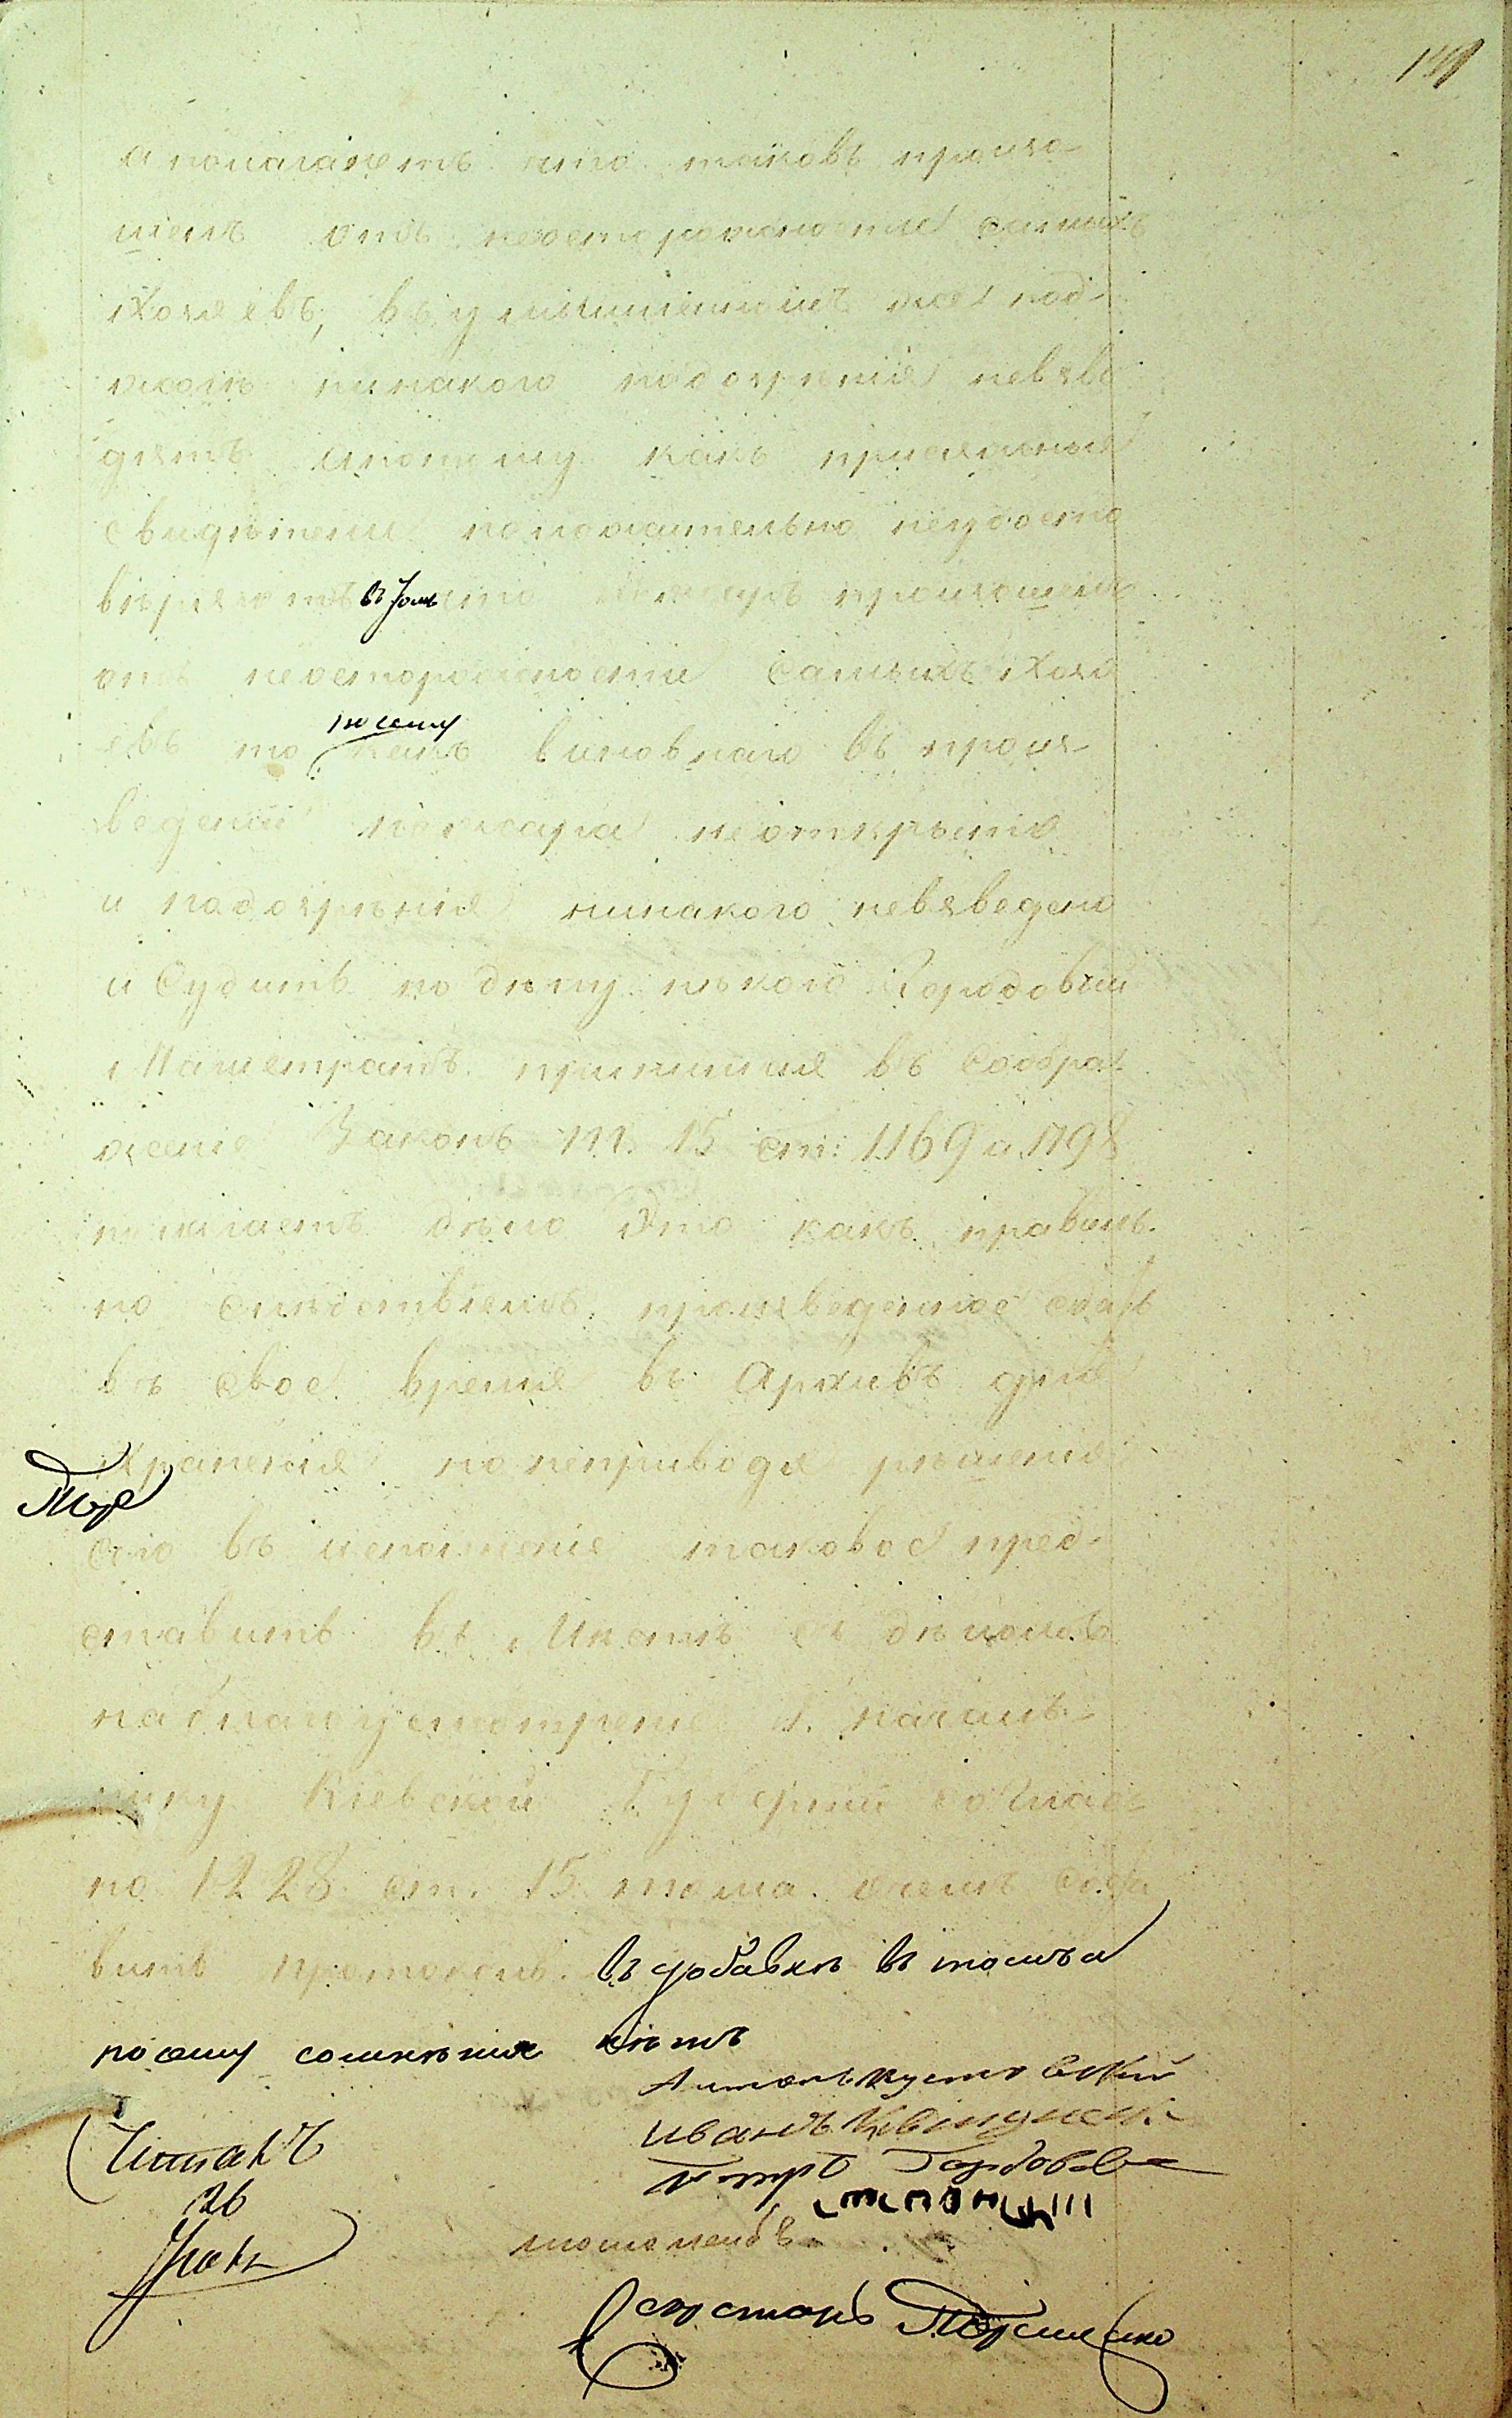 а полагаетъ что таковъ произо-
шелъ отъ неосторожности самихъ
Хозяевъ, въ умышленномъ же под-
жогѣ никакого подозрѣнія невзво
дятъ а потому какъ присяжные
свидѣтели положительно неудосто
вѣряютъ въ томъ что пожаръ произошелъ
отъ неосторожности самихъ Хозя
евъ то посему какъ виновнаго въ произ-
веденіи пожара неоткрыто
и подозрѣнія никакого невзведено
и судить по дѣлу некого Городовый
Магистратъ принимая въ сообра
женіе Законъ т. 15 ст: 1169 и 1198
полагаетъ дѣло это какъ правиль-
но слѣдствіемъ произведенное сдать
въ свое время въ Архивъ для
храненія но неприводя рѣшенія
Тор
сего въ исполненіе таковое пред-
ставить въ мнѣніи съ дѣломъ
на благоусмотрѣніе Г. Началь-
нику Кіевской Губерніи соглас-
но 1228 ст. 15 тома. о чемъ соста
вить протоколъ. въ добавкѣ въ томъ и
посему сомнѣнія нѣтъ
Антонъ
Иванъ
Петръ
Читалъ
26
Секретарь